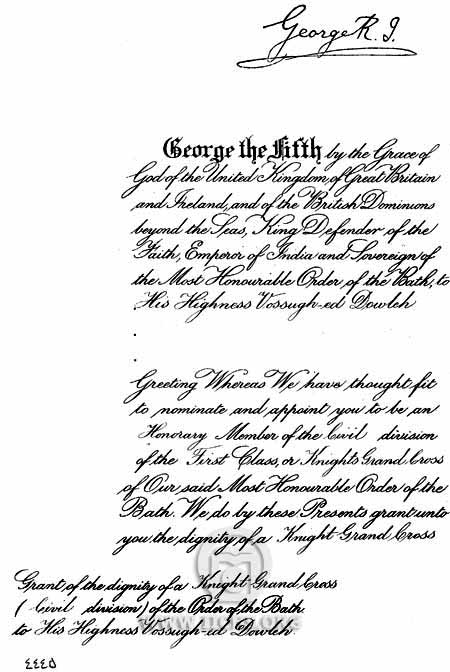 George R. I.
George the Fifth by the Grace of
God of the United Kingdom, of Great Britain
and Ireland, and of the British Dominions
beyond the Seas, King Defender of the
Faith, Emperor of India and Sovereign of
the Most Honourable Order of the Bath, to
His Highness Vossugh-ed Dowleh
Greeting Whereas We have thought fit
to nominate and appoint you to be an
Honorary Member of the Civil division
of the First Class, or Knights Grand Cross
of Our said Most Honourable Order of the
Bath. We do by these Presents grant unto
you the dignity of a Knight Grand Cross
Grant of the dignity of a Knight Grand Cross
(Civil division) of the Order of the Bath
to His Highness Vossugh-ed Dowleh.